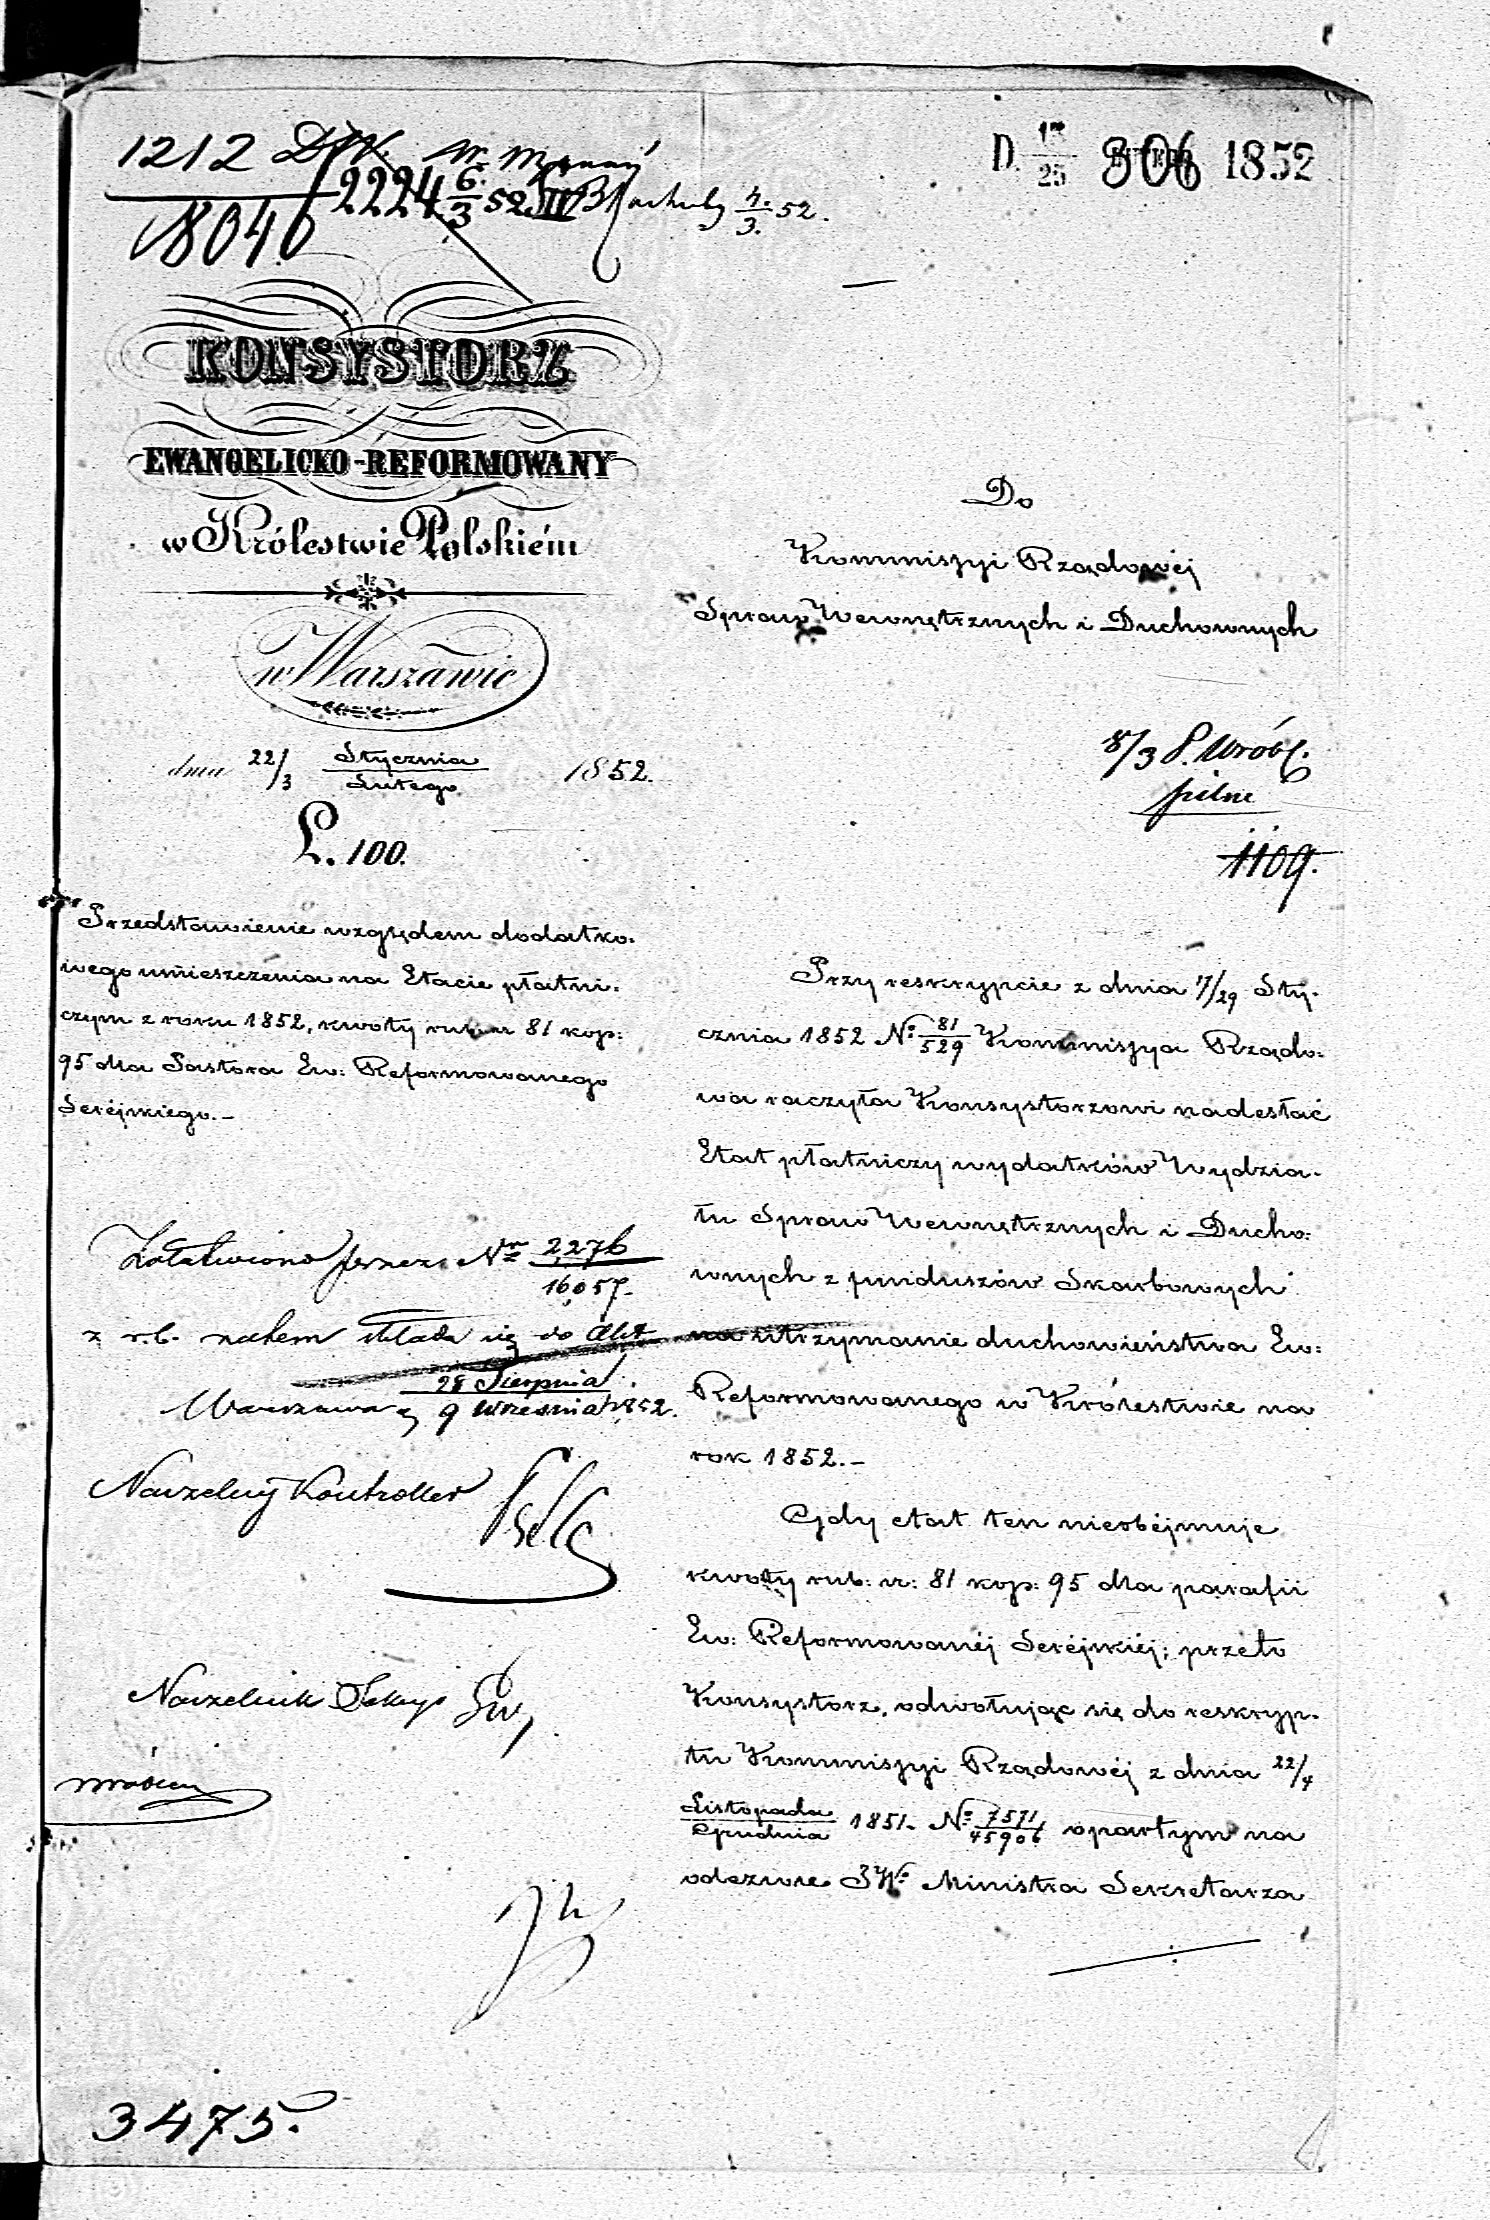 1212
8046
2224 6/3 52 II
4/3 52.
D. 17/25 306 1852
KONSYSTORZ
EWANGELICKO-REFORMOWANY
w Królestwie Polskiém
w Warszawie
dnia 22/3 Stycznia/Lutego 1852.
L. 100.
Przedstawienie względem dodatko-
wego umieszczenia na Etacie płatni-
czym z roku 1852, kwoty rub: sr: 81 kop:
95 dla Pastora Ew: Reformowanego
Seréjskiego.-
Załatwiono przez Nr 2276/16057.
z r.b. zatem składa się do Akt
Warszawa d. 28 Sierpnia/9 Września 1852.
Naczelny Kontroller
Naczelnik Sekcyi
3475.
Do
Kommissyi Rządowéj
Spraw Wewnętrznych i Duchownych
8/3 P. Wróbl.
pilne
1109.
Przy reskrypcie z dnia 17/29 Sty-
cznia 1852 No 81/529 Kommissya Rządo-
wa raczyła Konsystorzowi nadesłać
Etat płatniczy wydatków Wydzia-
łu Spraw Wewnętrznych i Ducho-
wnych z funduszów Skarbowych
na utrzymanie duchowieństwa Ew:
Reformowanego w Królestwie na
rok 1852.-
Gdy etat ten nieobéjmuje
kwoty rub: sr: 81 kop: 95 dla parafii
Ew: Reformowanéj Seréjskiéj; przeto
Konsystorz, odwołując się do reskryp-
tu Kommissyi Rządowéj z dnia 22/4
Listopada/Grudnia 1851. No 7571/45906 opartym na
odezwie JW. Ministra Sekretarza